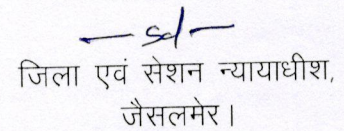 —sd—
जिला एवं सेशन न्यायाधीश,
जैसलमेर।